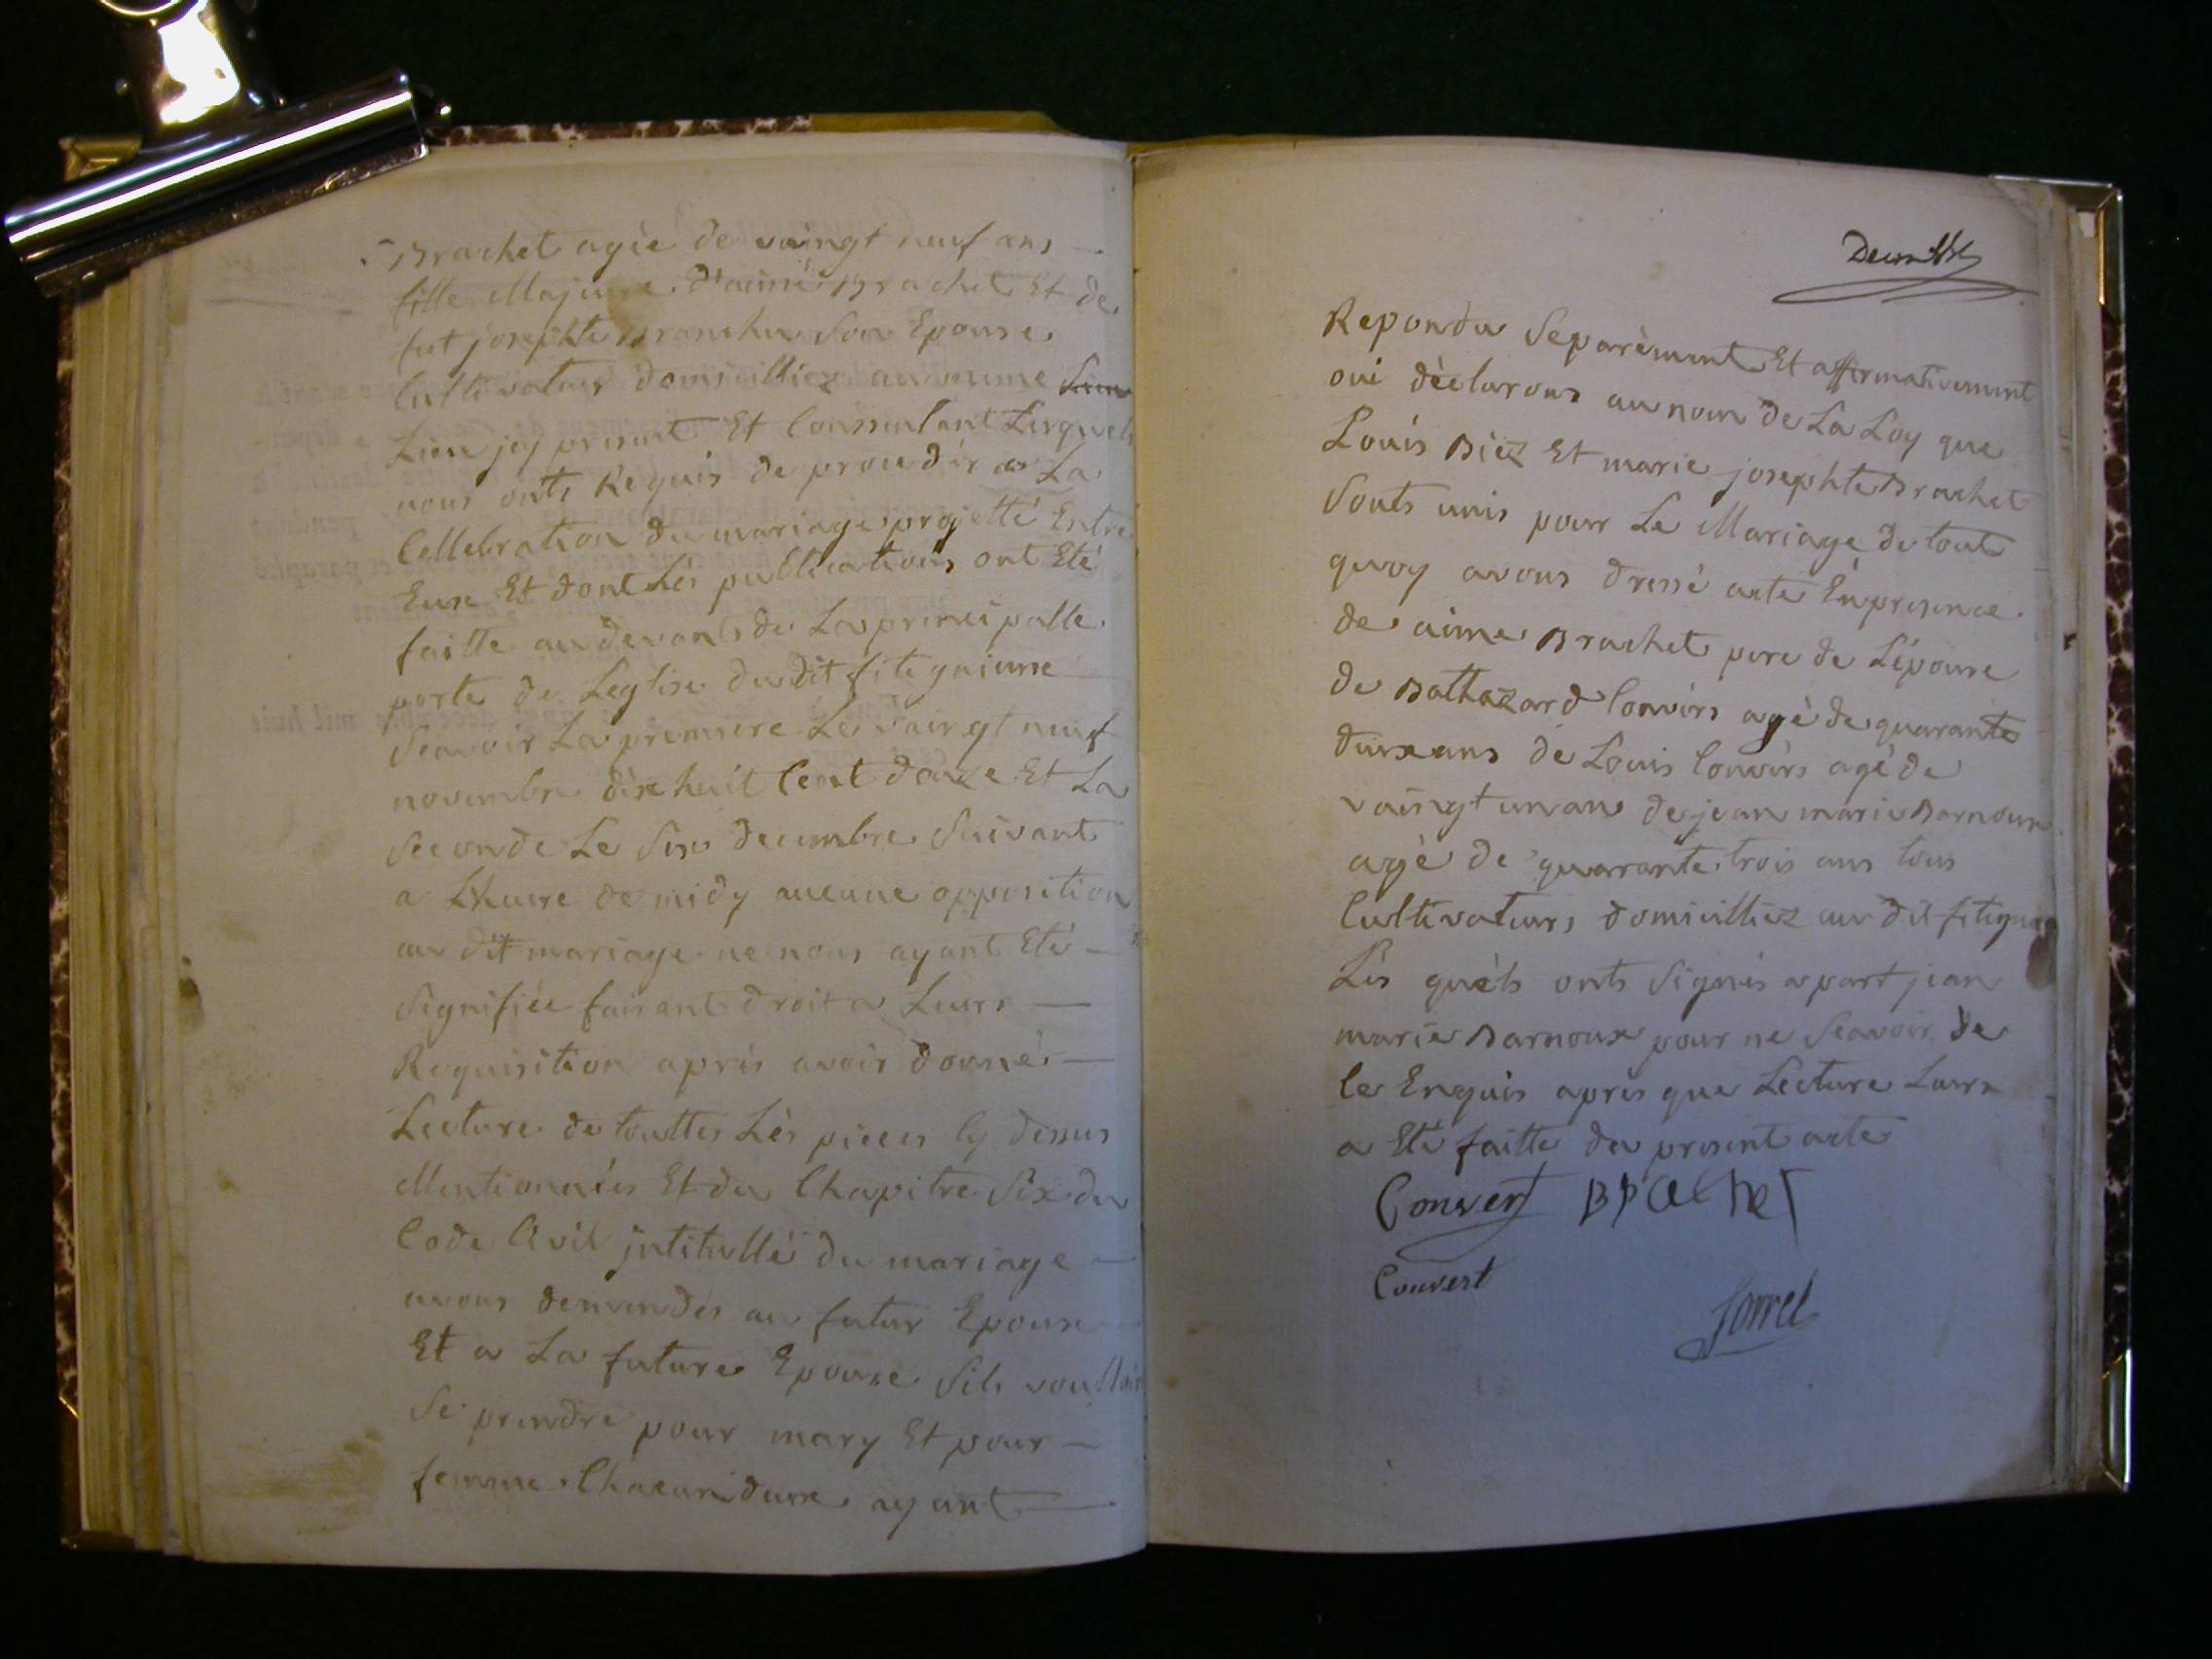 Brachet agée de vaingt neuf ans
fille Majeure d'aimé Brachet Et de
fut josephte Son Epouse
Cultivateur domicilliez au meme Lieu
Lieu jcy present Et Consentant Lesquels
nous onts Requis de procedér a La
Cellebration du mariage projetté Entre
Eux Et dont Lés publications ont Eté
faitte au devants de La principalle
porte de Leglise du dit fitignieux
Scavoir La premiere Le vaingt neuf
novembre dix huit Cent douze Et La
Seconde Le Six decembre Suivant
a Lheure de midy aucune opposition
au dit mariage ne nous ayant Eté
Signifiée faisant droit a Leurs
Requisition aprés avoir donné
Lecture de touttes Lés pieces Cy dessus
Mentionnées Et du Chapitre Six du
Code Civil jntitullé du mariage
avons demandés au futur Epoux
Et a La future Epouse Sils voulloir
Se prendre pour mary Et pour
femme Chacun deux ayant
Repondu Separèment Et affirmativement
oui dèclarons au nom de La Loy que
Louis Biez Et marie josephte Brachet
Sonts unis pour Le Mariage de tout
quoy avons dressé acte Enpresence
de aime Brachet pere de Lépouse
de Baltazard Convèrs agè de quarante
deux ans de Louis Convèrs agé de
vaingt un ans de jean marie Barnoux
agè de quarrante trois ans tous
Cultivateurs domicilliez au dit fitigni
Lés quèls onts Signés a part jean
marie Barnoux pour ne Scavoir de
Ce Enquis apres que Lecture Leurs
a Eté faitte du present acte
Convert Brachet
Convert
Jorrel